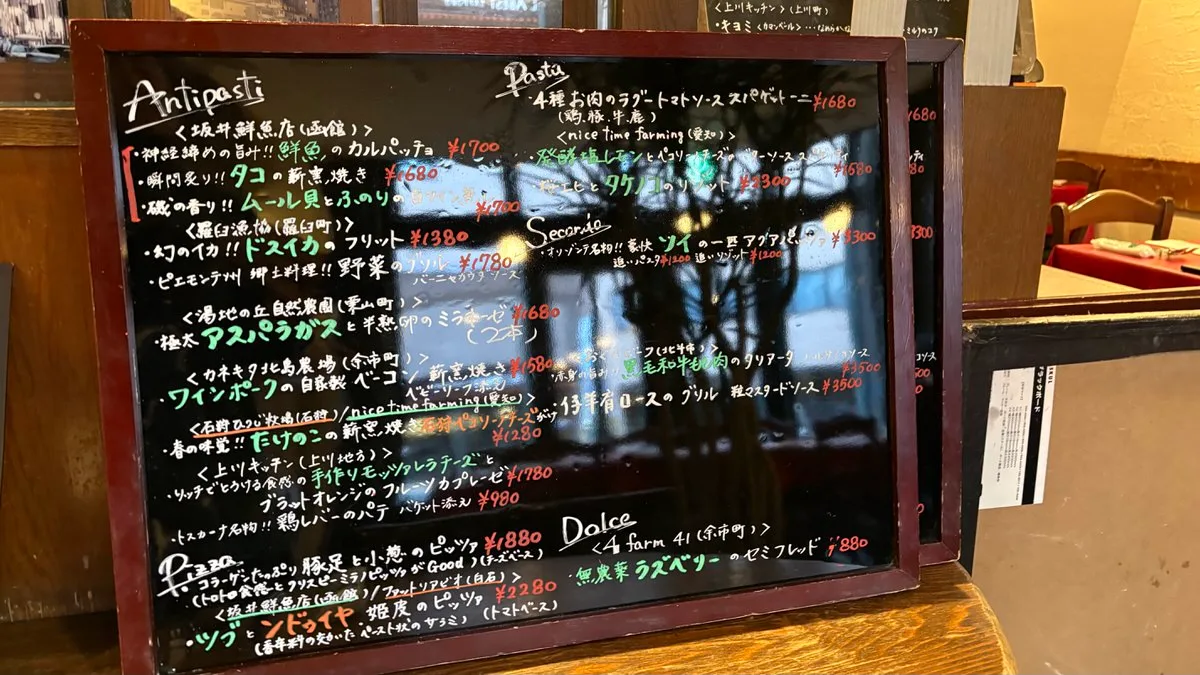 Antipasti
<坂井鮮魚店(函館)>
・神経締めの旨み!! 鮮魚のカルパッチョ ¥1700
・瞬間炙り!! タコの薪窯焼き ¥1680
・磯の香り!! ムール貝とふのりの白ワイン蒸 ¥1700
<羅臼漁協(羅臼町)>
・幻のイカ!! ドスイカのフリット ¥1380
・ピエモンテ州 郷土料理!! 野菜のグリル ¥1780
バーニャカウダソース
<湯地の丘自然農園(栗山町)>
・極太アスパラガスと半熟卵のミラネーゼ ¥1680
(2本)
<カネキタ北島農場(余市町)>
・ワインポークの自家製ベーコン 薪窯焼き ¥1580
ベビーリーフ添え
<石狩ひつじ牧場(石狩)/nice time farming(愛知)>
・春の味覚!! たけのこの薪窯焼き 石狩ペコリーノチーズがけ
¥1280
<上川キッチン(上川地方)>
・リッチでとろける食感の手作りモッツァレラチーズと
ブラッドオレンジのフルーツカプレーゼ ¥1780
・トスカーナ名物!! 鶏レバーのパテ バゲット添え ¥980
Pizza
・コラーゲンたっぷり 豚足と小葱のピッツァ ¥1880
(トロトロ食感とクリスピーミラノピッツァがGood) (チーズベース)
<坂井鮮魚店(函館)/ファットリアビオ(白石)>
・ツブとンドゥイヤ 姫皮のピッツァ ¥2280
(香辛料の効いたペースト状のサラミ) (トマトベース)
Pasta
・4種お肉のラグートマトソース スパゲットーニ ¥1680
(鶏.豚.牛.鹿)
<nice time farming(愛知)>
・発酵塩レモンとペコリーノチーズの ターソース ¥1680
桜エビとタケノコのリゾット ¥2300
Secondo
・オリゾンテ名物!! 豪快 ソイの一匹アクアパッツァ ¥3300
追いパスタ¥1200 追いリゾット¥1200
ビーフ(北斗市)>
・赤身の旨み!! 黒毛和牛もも肉のタリアータ ソース
¥3500
・仔羊肩ロースのグリル 粒マスタードソース ¥3500
Dolce
<4 farm 41(余市町)>
・無農薬ラズベリーのセミフレッド ¥880
<上川キッチン>(上川町)
・キヨミ<カマンベール>…
ブラックボード